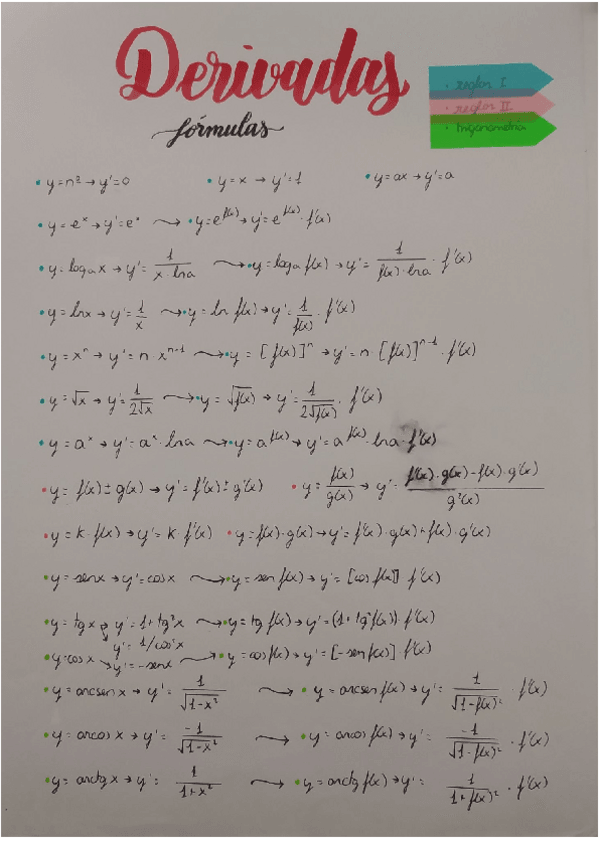 Derivadas
fórmulas
· reglas I
· reglas II
· trigonometría
• y = nº → y' = 0 • y = x → y' = 1 • y = ax → y' = a
• y = eˣ → y' = eˣ ⟶ • y = e^f(x) → y' = e^f(x) · f'(x)
• y = logₐ x → y' = 1/(x · ln a) ⟶ • y = logₐ f(x) → y' = 1/(f(x) · ln a) · f'(x)
• y = ln x → y' = 1/x ⟶ • y = ln f(x) → y' = 1/f(x) · f'(x)
• y = xⁿ → y' = n · xⁿ⁻¹ ⟶ • y = [f(x)]ⁿ → y' = n · [f(x)]ⁿ⁻¹ · f'(x)
• y = √x → y' = 1/(2√x) ⟶ • y = √f(x) → y' = 1/(2√f(x)) · f'(x)
• y = aˣ → y' = aˣ · ln a ⟶ • y = a^f(x) → y' = a^f(x) · ln a · f'(x)
• y = f(x) ± g(x) → y' = f'(x) ± g'(x) • y = f(x)/g(x) → y' = (f'(x) · g(x) - f(x) · g'(x))/g²(x)
• y = k · f(x) → y' = k · f'(x) • y = f(x) · g(x) → y' = f'(x) · g(x) + f(x) · g'(x)
• y = sen x → y' = cos x ⟶ • y = sen f(x) → y' = [cos f(x)] · f'(x)
• y = tg x → y' = 1 + tg²x ⟶ • y = tg f(x) → y' = (1 + tg² f(x)) · f'(x)
↳ y' = 1/cos²x
• y = cos x → y' = -sen x ⟶ • y = cos f(x) → y' = [-sen f(x)] · f'(x)
• y = arcsen x → y' = 1/√(1-x²) ⟶ • y = arcsen f(x) → y' = 1/√(1-f(x)²) · f'(x)
• y = arcos x → y' = -1/√(1-x²) ⟶ • y = arcos f(x) → y' = -1/√(1-f(x)²) · f'(x)
• y = arctg x → y' = 1/(1+x²) ⟶ • y = arctg f(x) → y' = 1/(1+f(x)²) · f'(x)